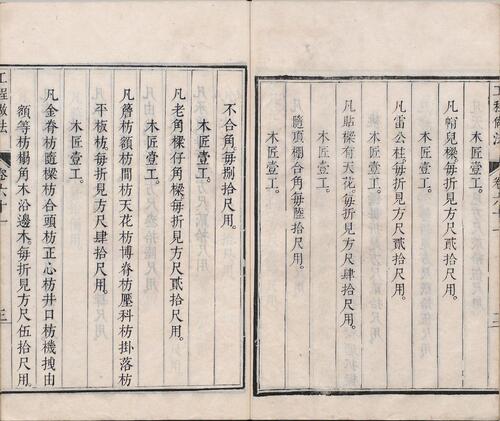 工程做法 卷六十一
凡帽兒樑每折見方尺貳拾尺用。
木匠壹工。
凡雷公柱每折見方尺貳拾尺用。
木匠壹工。
凡貼樑有天花每折見方尺肆拾尺用。
木匠壹工。
隨頂棚合角每陸拾尺用。
木匠壹工。
不合角每捌拾尺用。
木匠壹工。
凡老角樑仔角樑每折見方尺貳拾尺用。
木匠壹工。
凡簷枋額枋間枋天花枋博脊枋壓科枋掛落枋
平板枋每折見方尺肆拾尺用。
木匠壹工。
凡金脊枋隨樑枋合頭枋正心枋井口枋機拽由
額等枋榻角木沿邊木。每折見方尺伍拾尺用。
工程做法 卷六十一 三